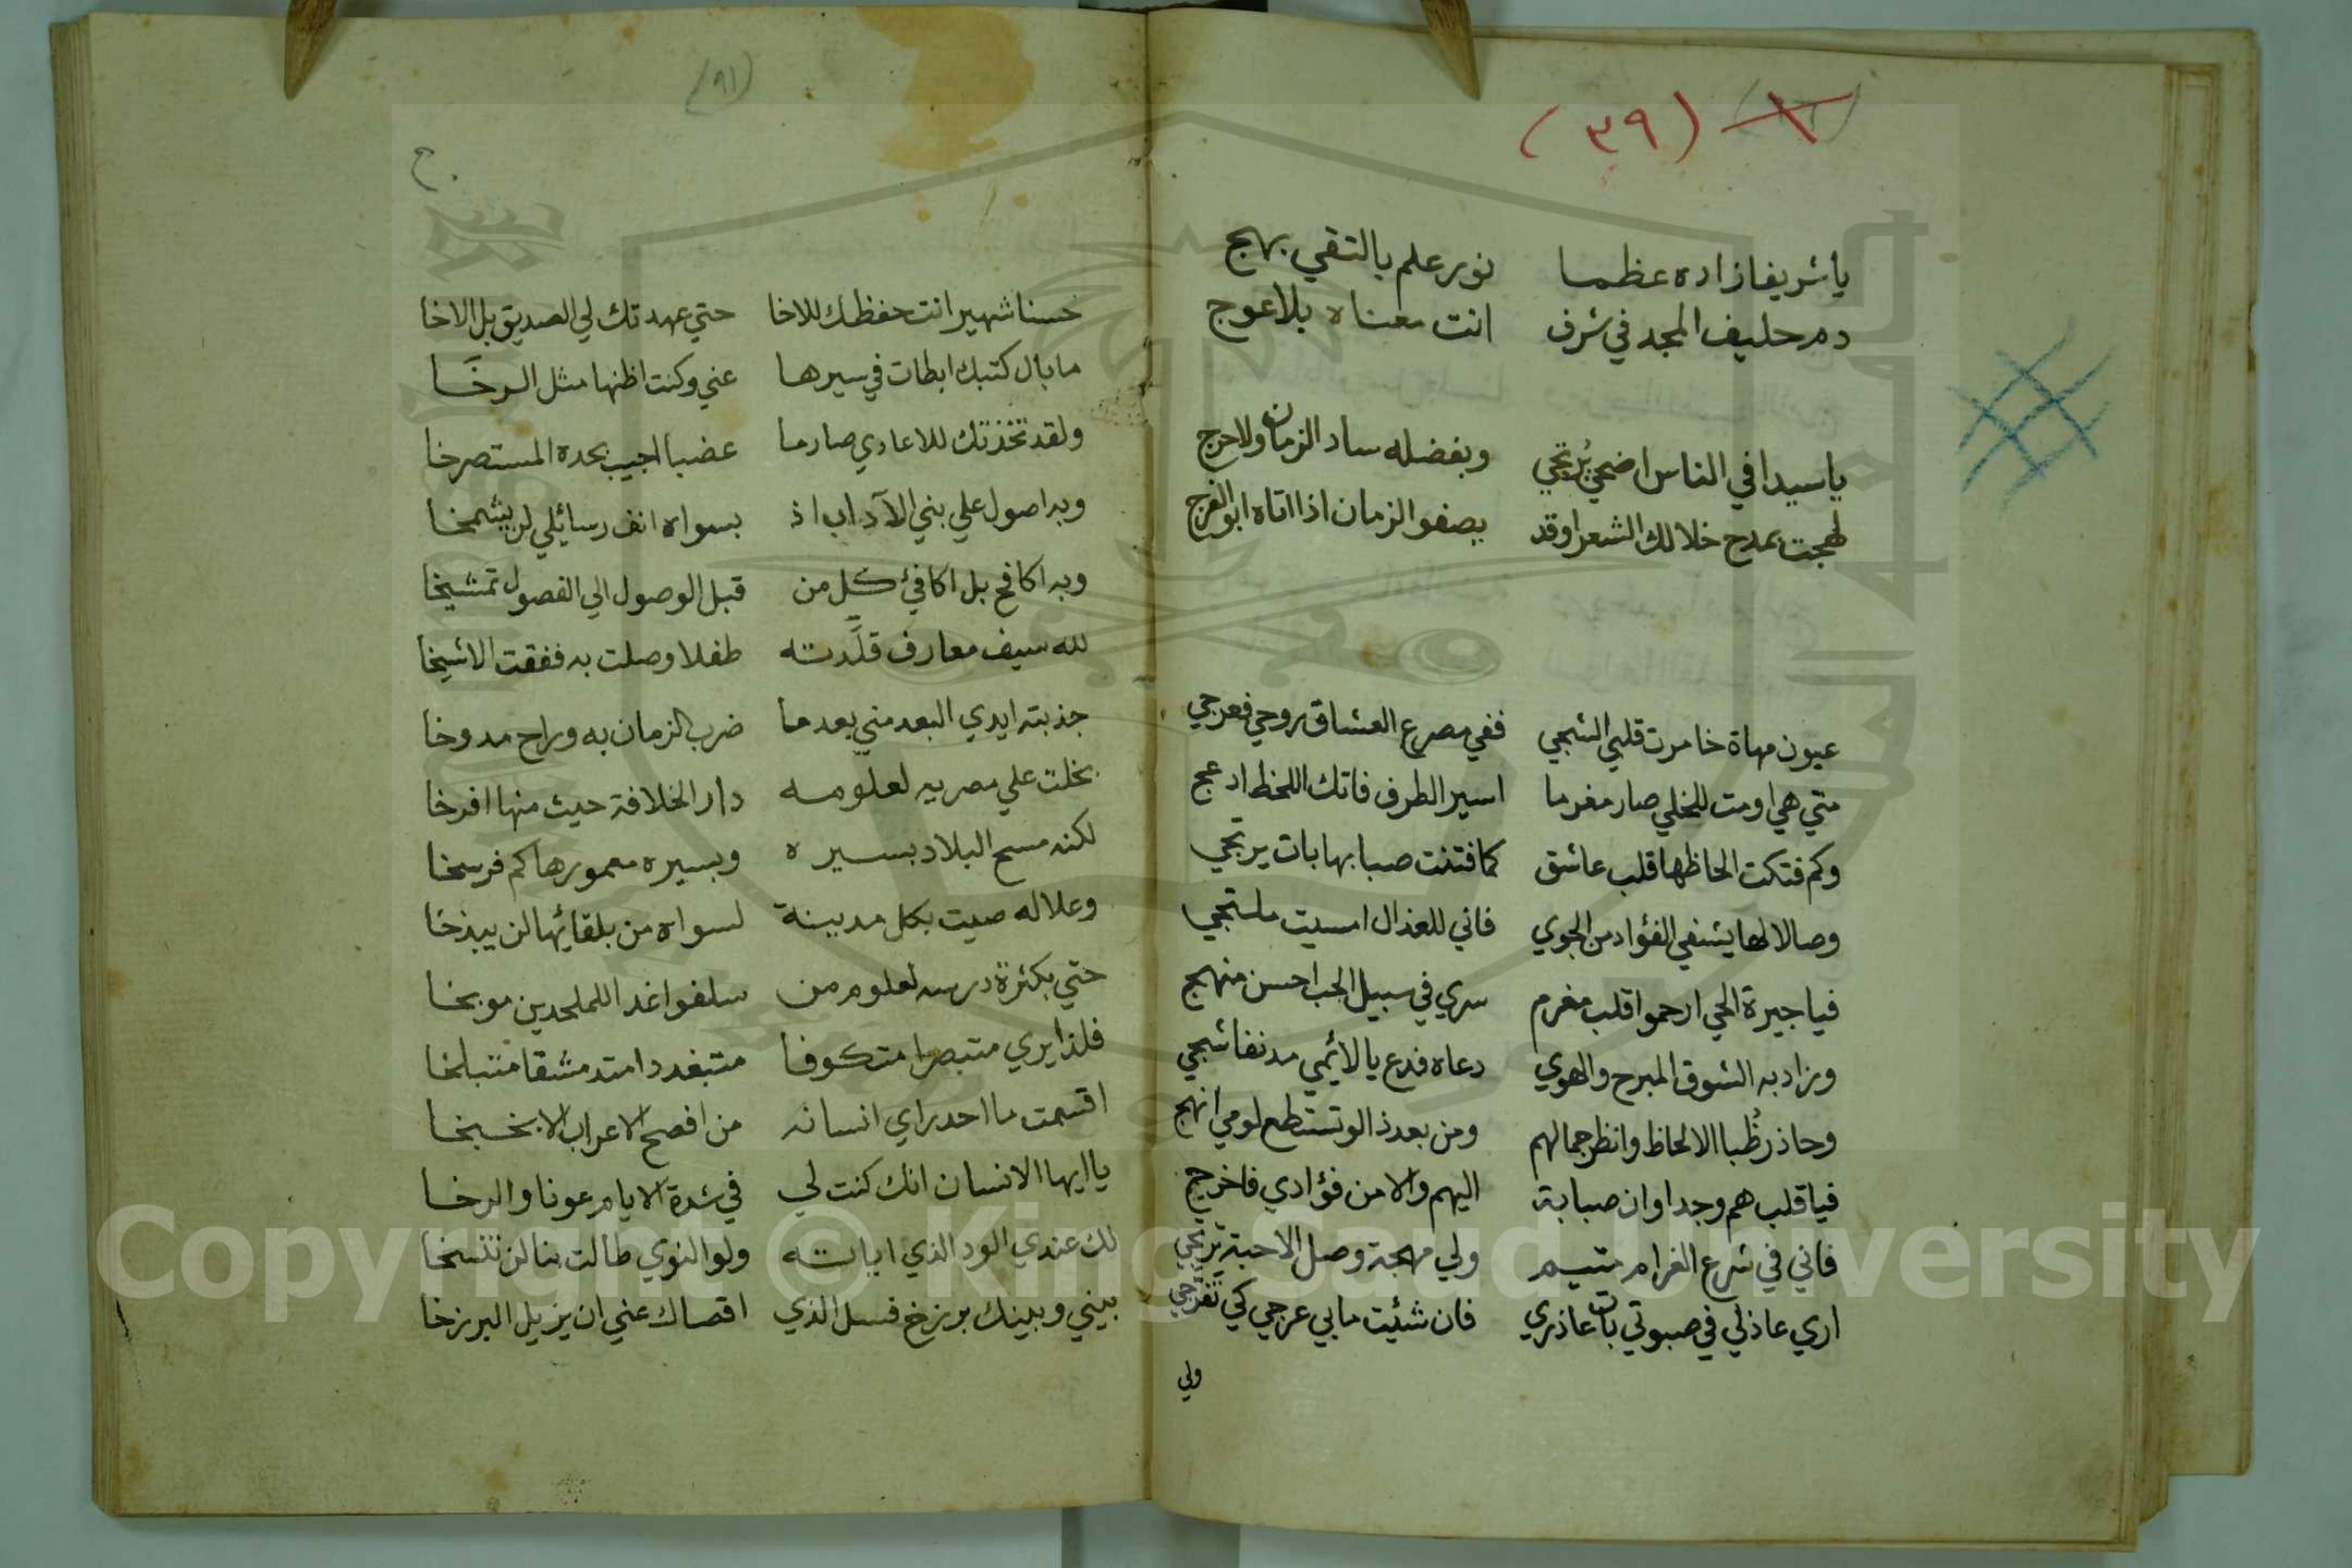 (٣٩)
يا شريفا زاده عظما نور علم بالتقي بهج
دم حليف المجد في شرف انت معناه بلا عوج
يا سيدا في الناس اضحي يُرتجي وبفضله ساد الزمان ولا حرج
لهجت بمدح خلالك الشعرا وقد يصفو الزمان اذا اتاه ابو الفرج
عيون مهاة خامرت قلبي الشجي ففي مصرع العشاق روحي فعرجي
متي هي اومت للخلي صار مغرما اسير الطرف فاتك اللحظ ادعج
وكم فتكت الحاظها قلب عاشق كما فتنت صبا بها بات يرتجي
وصالا لها يشفي الفؤاد من الجوي فاني للعذال امسيت ملتجي
فيا جيرة الحي ارحموا قلب مغرم سري في سبيل الحب احسن منهج
وزاد به الشوق المبرح والهوي دعاه فدع يا لائمي مدنفا شجي
وحاذر ظُبا الالحاظ وانظر جمالهم ومن بعد ذا لو تستطع لومي انهج
فيا قلب هم وجدا وان صبابة اليهم والا من فؤادي فاخرج
فاني في شرع الغرام متيم ولي مهجة وصل الاحبة ترتجي
اري عاذلي في صبوتي بات عاذري فان شئيت ما بي عرجي كي تفرجي
ولي
(٩١)
خ
حسنا شهير انت حفظك للاخا حتي عهدتك لي الصديق بل الاخا
ما بال كتبك ابطات في سيرها عني وكنت اظنها مثل الرخَا
ولقد تخذتك للاعادي صارما عضبا اجيب بحده المستصرخا
وبه اصول علي بني الآداب اذ بسواه انف رسائلي لن يشمخا
وبه اكافح بل اكافئ كل من قبل الوصول الي الفصول تمشيخا
لله سيف معارف قلَّدته طفلا وصلت به ففقت الاشيخا
جذبته ايدي البعد مني بعد ما ضرب الزمان به وراح مدوخا
بخلت علي مصر به لعلومه دار الخلافة حيث منها افرخا
لكنه مسح البلاد بسيره وبسيره معمورها كم فرسخا
وعلا له صيت بكل مدينة لسواه من بلقائها لن يبذخا
حتي بكثرة درسه لعلوم من سلفوا غدا للملحدين موبخا
فلذا يري متبصرا متكوفا متبغددا متدمشقا متبلخا
اقسمت ما احد راي انسانه من افصح الاعراب الا بخبخا
يا ايها الانسان انك كنت لي في شدة الايام عونا والرخا
لك عندي الود الذي اياته ولو النوي طالت بنا لن تنسخا
بيني وبينك برزخ فسل الذي اقصاك عني ان يزيل البرزخا
Copyright © King Saud University